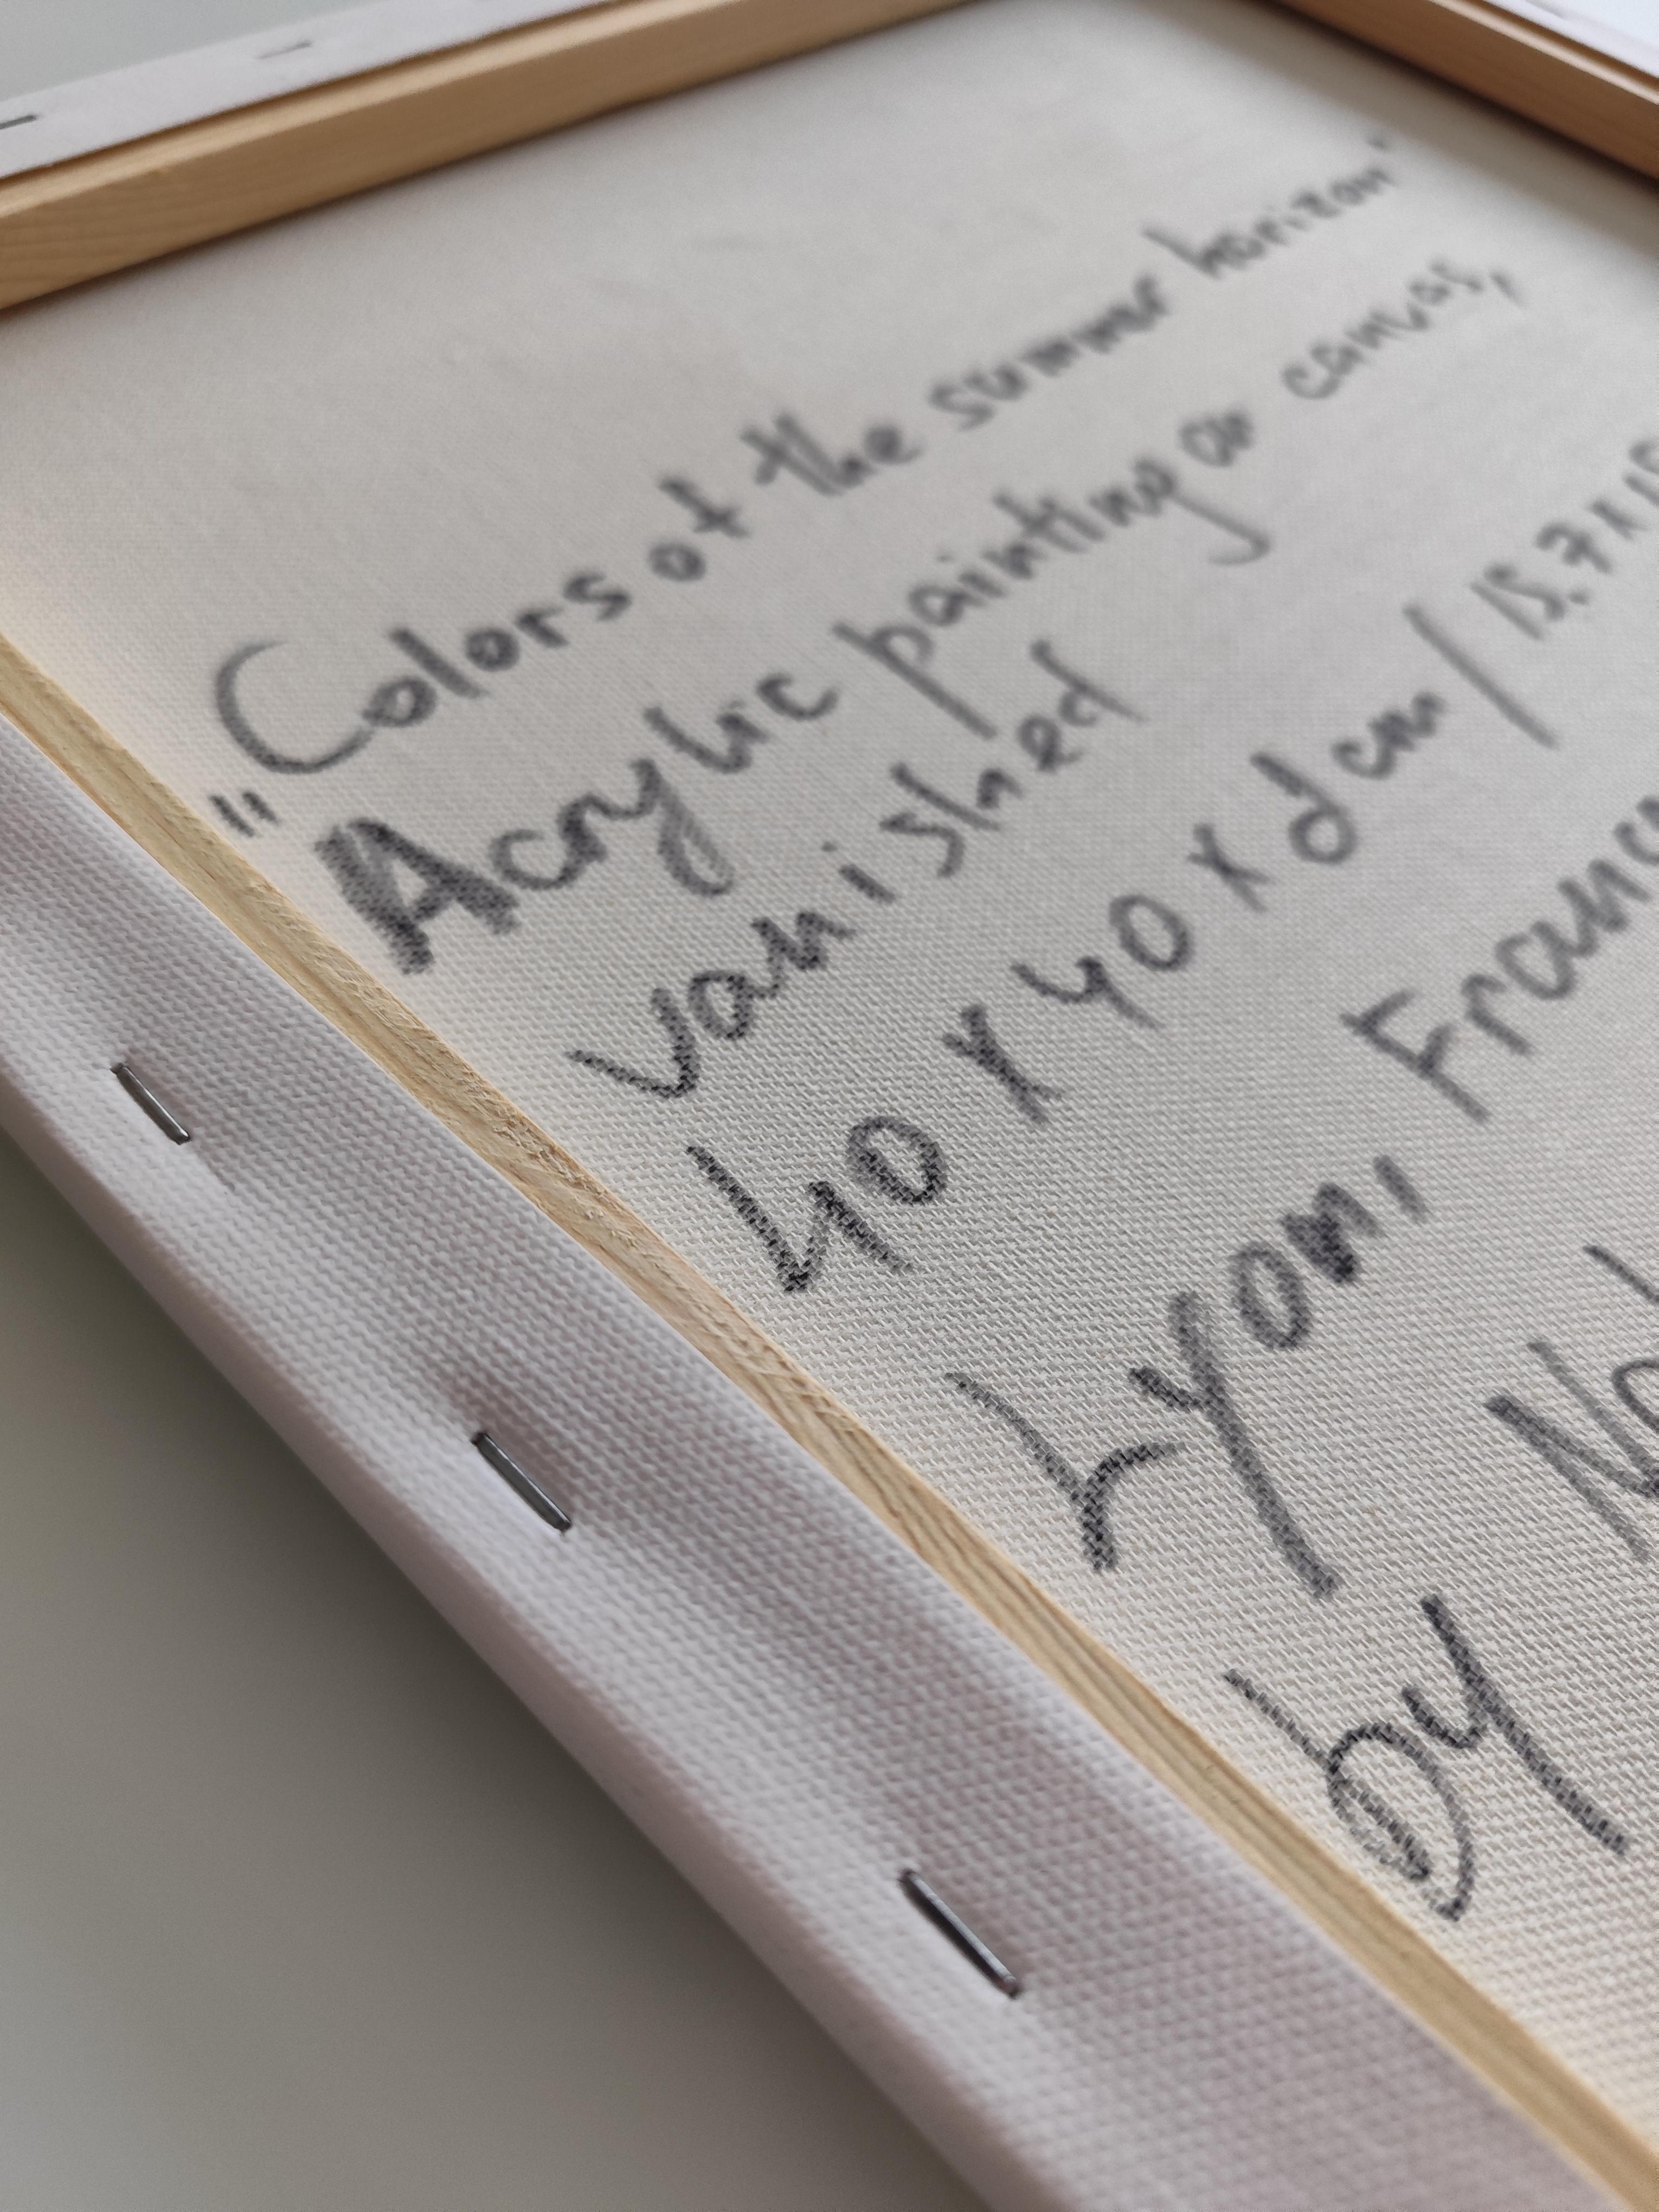 "Colors of the summer horizon"
Acrylic painting on canvas,
vanished
40 x 40 x 2 cm / 15.7 x 15
Lyon, Franc
by Nat